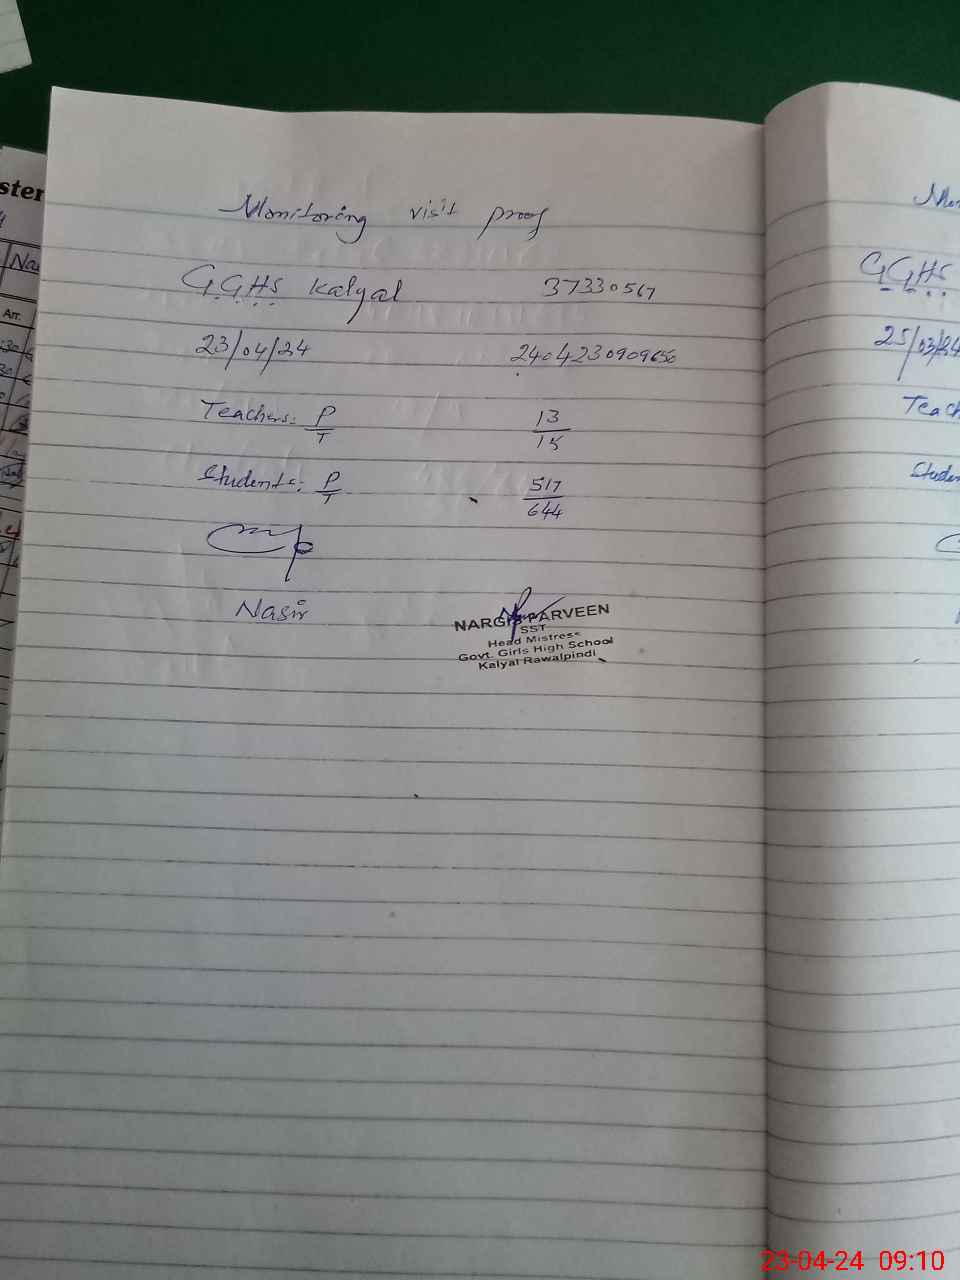 Monitoring visit proof
G.G.H.S Kalyal 37330567
23/04/24 240423090965
Teachers: P/T 13/15
Students: P/T 517/644
Nasir
NARGIS PARVEEN
SST
Head Mistress
Govt. Girls High School
Kalyal Rawalpindi
Mon
G.G.H.S
25/03/24
Teach
Studen
ster
Na
Arr.
23-04-24 09:10